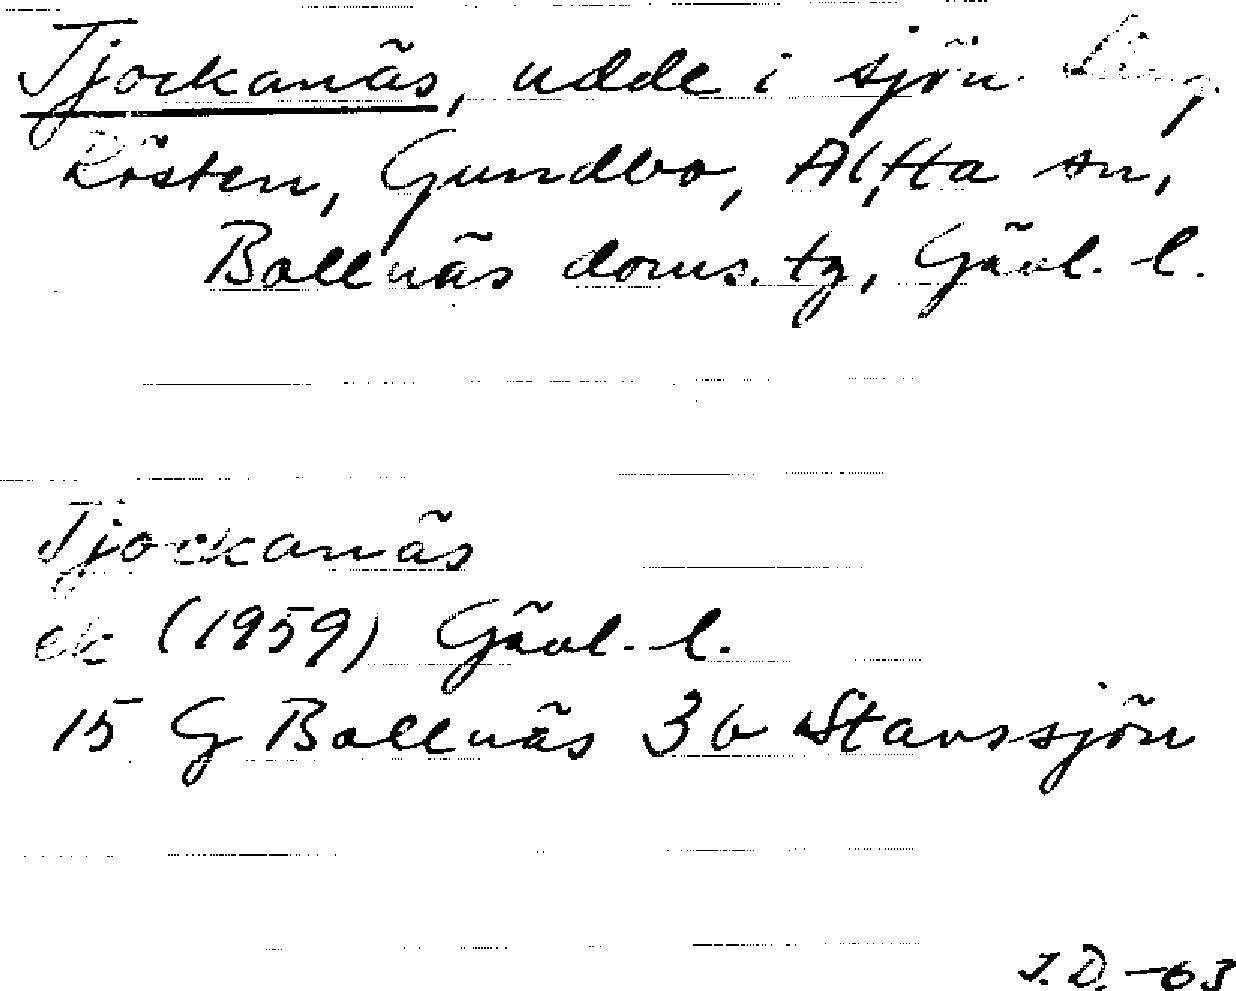 Tjockanäs, udde i sjön Läng
Rösten, Gundbo, Alfta sn,
Bollnäs doms. tg, Gävl. l.
Tjockanäs
ek (1959) Gävl. l.
15 G Bollnäs 3b Stavssjön
J.D. -63